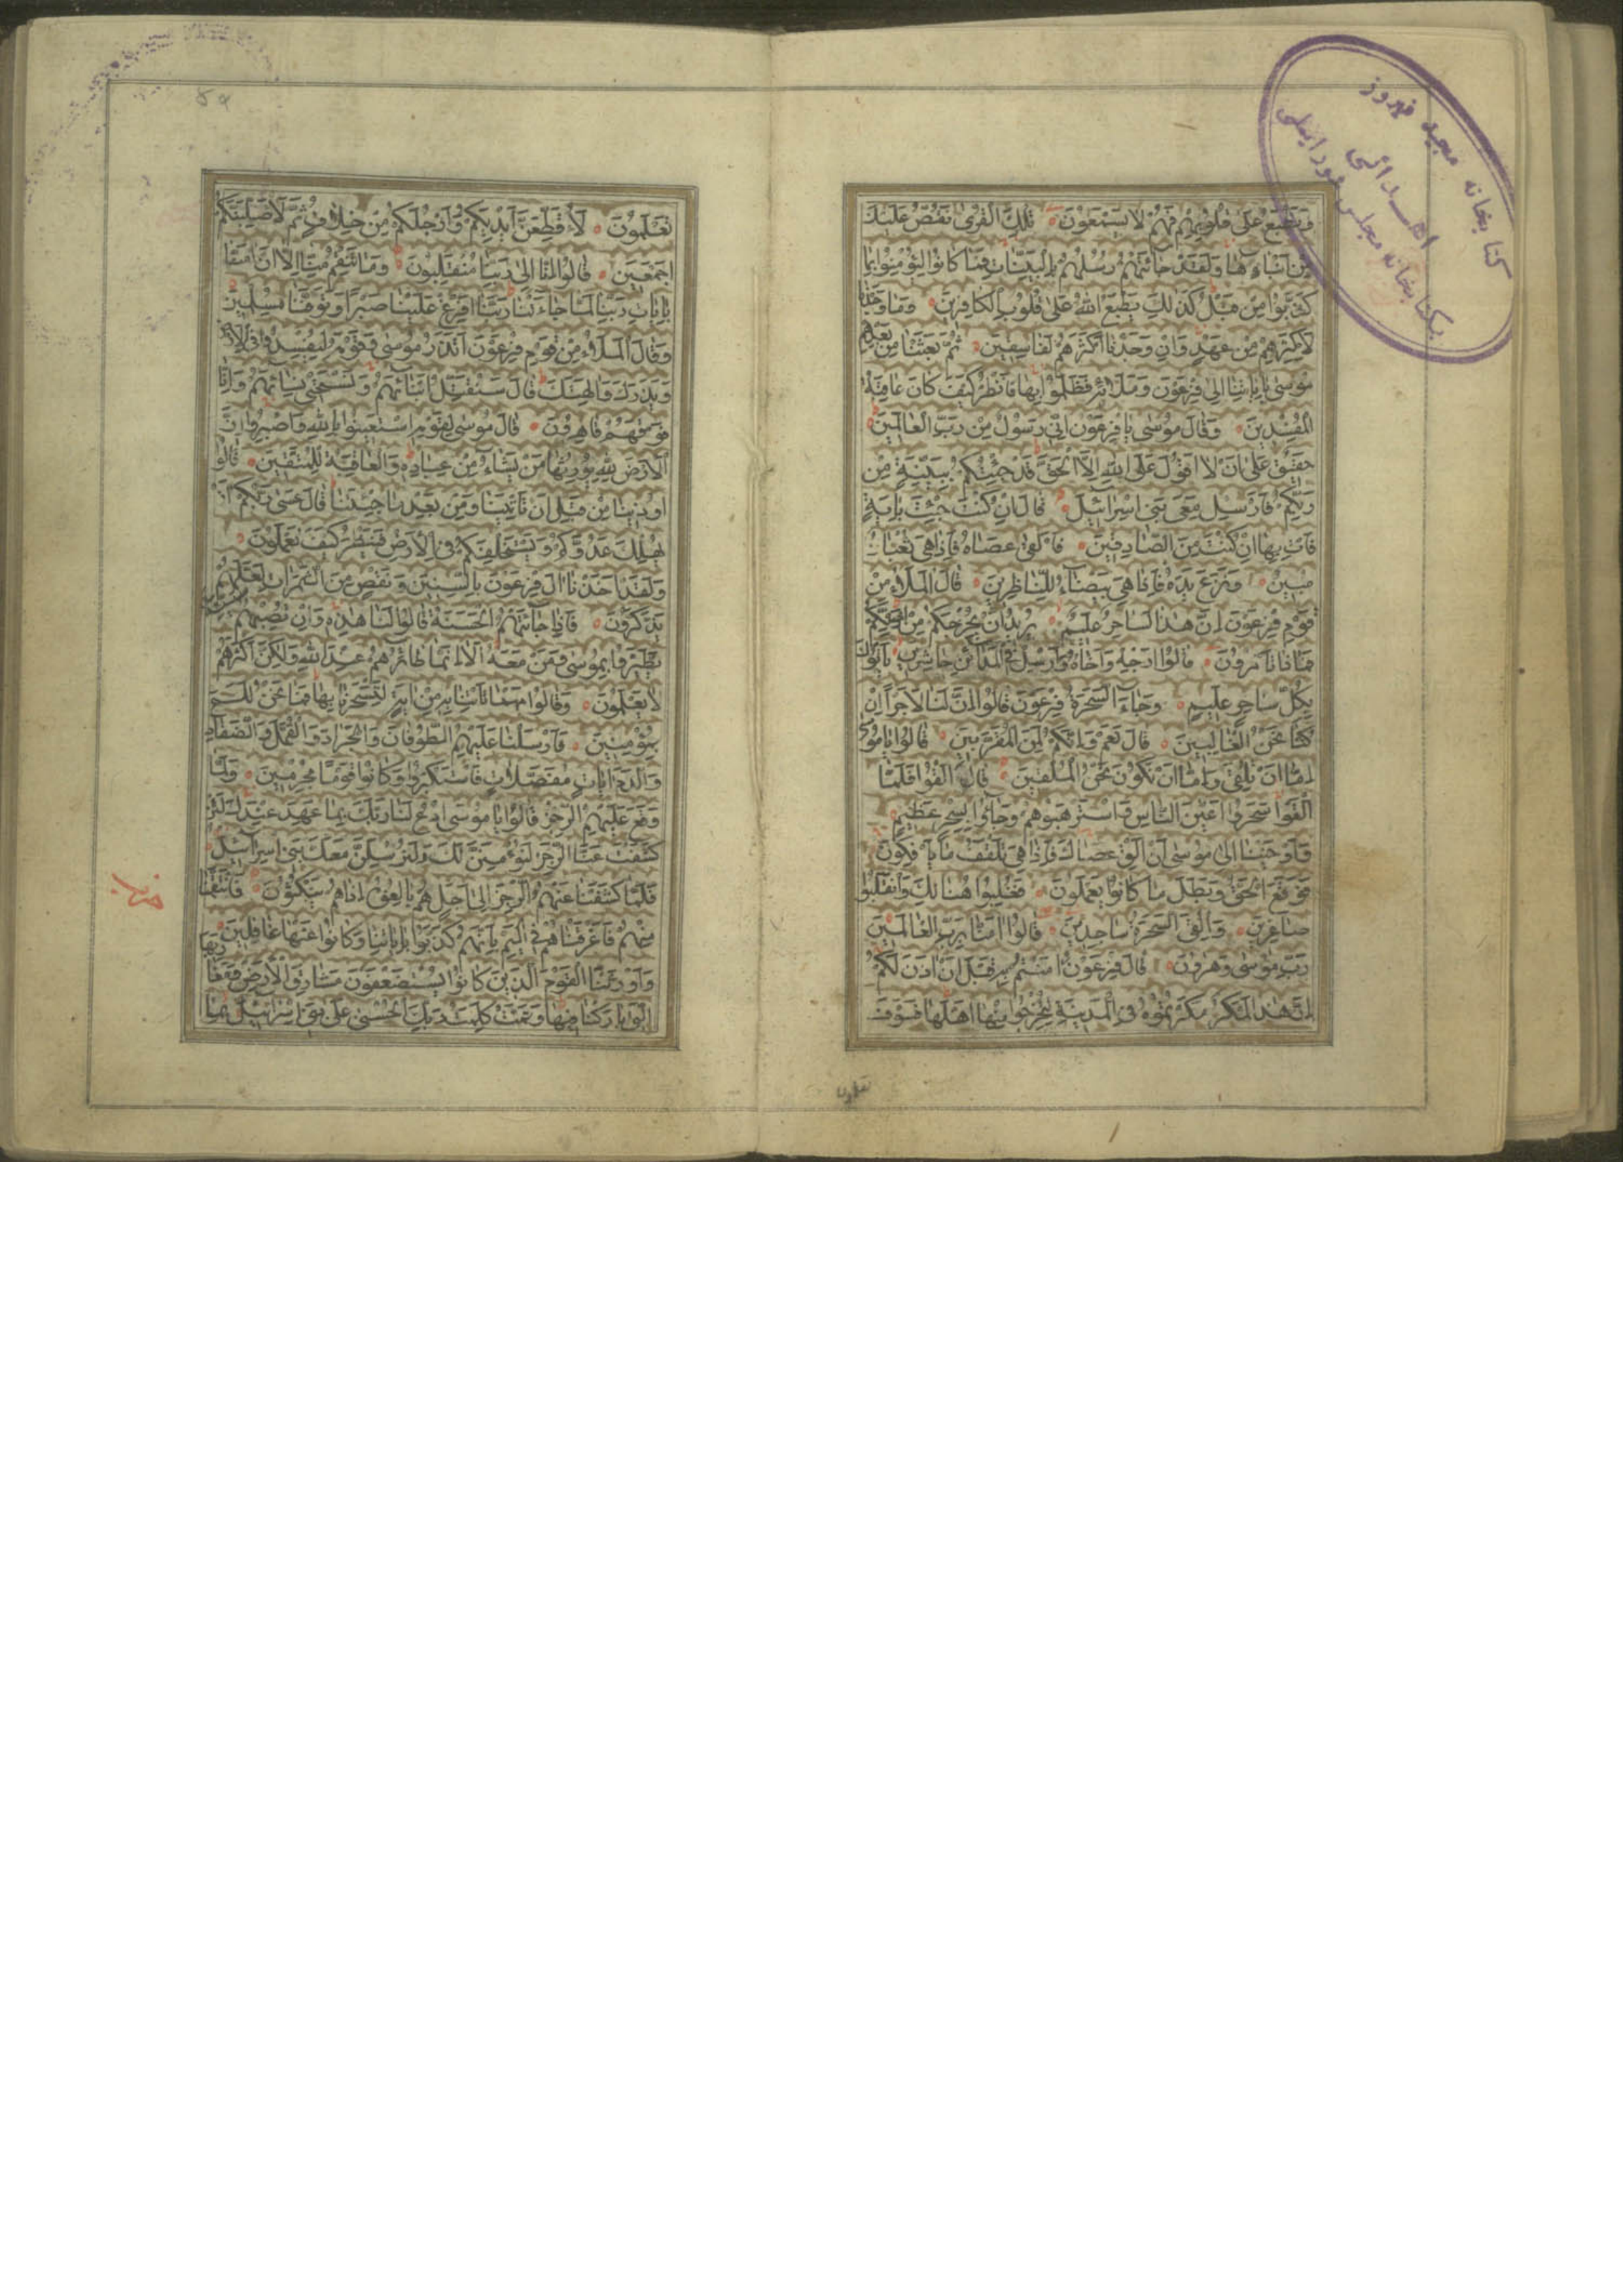 وَنَطْبَعُ عَلٰى قُلُوبِهِمْ فَهُمْ لَا يَسْمَعُونَ تِلْكَ الْقُرٰى نَقُصُّ عَلَيْكَ
مِنْ اَنْبَاءِهَا وَلَقَدْ جَائَتْهُمْ رُسُلُهُمْ بِالْبَيِّنَاتِ فَمَا كَانُوا لِيُؤْمِنُوا بِمَا
كَذَّبُوا مِنْ قَبْلُ كَذٰلِكَ يَطْبَعُ اللّٰهُ عَلٰى قُلُوبِ الْكَافِرِينَ وَمَا وَجَدْنَا
لِاَكْثَرِهِمْ مِنْ عَهْدٍ وَاِنْ وَجَدْنَا اَكْثَرَهُمْ لَفَاسِقِينَ ثُمَّ بَعَثْنَا مِنْ بَعْدِهِمْ
مُوسٰى بِاٰيَاتِنَا اِلٰى فِرْعَوْنَ وَمَلَائِهِ فَظَلَمُوا بِهَا فَانْظُرْ كَيْفَ كَانَ عَاقِبَةُ
الْمُفْسِدِينَ وَقَالَ مُوسٰى يَا فِرْعَوْنُ اِنِّي رَسُولٌ مِنْ رَبِّ الْعَالَمِينَ
حَقِيقٌ عَلٰى اَنْ لَا اَقُولَ عَلَى اللّٰهِ اِلَّا الْحَقَّ قَدْ جِئْتُكُمْ بِبَيِّنَةٍ مِنْ
رَبِّكُمْ فَاَرْسِلْ مَعِيَ بَنِي اِسْرَائِيلَ قَالَ اِنْ كُنْتَ جِئْتَ بِاٰيَةٍ
فَأْتِ بِهَا اِنْ كُنْتَ مِنَ الصَّادِقِينَ فَاَلْقٰى عَصَاهُ فَاِذَا هِيَ ثُعْبَانٌ
مُبِينٌ وَنَزَعَ يَدَهُ فَاِذَا هِيَ بَيْضَاءُ لِلنَّاظِرِينَ قَالَ الْمَلَاءُ مِنْ
قَوْمِ فِرْعَوْنَ اِنَّ هٰذَا لَسَاحِرٌ عَلِيمٌ يُرِيدُ اَنْ يُخْرِجَكُمْ مِنْ اَرْضِكُمْ
فَمَاذَا تَأْمُرُونَ قَالُوا اَرْجِهْ وَاَخَاهُ وَاَرْسِلْ فِي الْمَدَائِنِ حَاشِرِينَ يَأْتُوكَ
بِكُلِّ سَاحِرٍ عَلِيمٍ وَجَاءَ السَّحَرَةُ فِرْعَوْنَ قَالُوا اِنَّ لَنَا لَاَجْرًا اِنْ
كُنَّا نَحْنُ الْغَالِبِينَ قَالَ نَعَمْ وَاِنَّكُمْ لَمِنَ الْمُقَرَّبِينَ قَالُوا يَا مُوسٰى
اِمَّا اَنْ تُلْقِيَ وَاِمَّا اَنْ نَكُونَ نَحْنُ الْمُلْقِينَ قَالَ اَلْقُوا فَلَمَّا
اَلْقَوْا سَحَرُوا اَعْيُنَ النَّاسِ وَاسْتَرْهَبُوهُمْ وَجَاؤُا بِسِحْرٍ عَظِيمٍ
وَاَوْحَيْنَا اِلٰى مُوسٰى اَنْ اَلْقِ عَصَاكَ فَاِذَا هِيَ تَلْقَفُ مَا يَأْفِكُونَ
فَوَقَعَ الْحَقُّ وَبَطَلَ مَا كَانُوا يَعْمَلُونَ فَغُلِبُوا هُنَالِكَ وَانْقَلَبُوا
صَاغِرِينَ وَاُلْقِيَ السَّحَرَةُ سَاجِدِينَ قَالُوا اٰمَنَّا بِرَبِّ الْعَالَمِينَ
رَبِّ مُوسٰى وَهٰرُونَ قَالَ فِرْعَوْنُ اٰمَنْتُمْ بِهِ قَبْلَ اَنْ اٰذَنَ لَكُمْ
اِنَّ هٰذَا لَمَكْرٌ مَكَرْتُمُوهُ فِي الْمَدِينَةِ لِتُخْرِجُوا مِنْهَا اَهْلَهَا فَسَوْفَ
تعلمون
کتابخانه مجید فیروز
۵۹
تَعْلَمُونَ لَاُقَطِّعَنَّ اَيْدِيَكُمْ وَاَرْجُلَكُمْ مِنْ خِلَافٍ ثُمَّ لَاُصَلِّبَنَّكُمْ
اَجْمَعِينَ قَالُوا اِنَّا اِلٰى رَبِّنَا مُنْقَلِبُونَ وَمَا تَنْقِمُ مِنَّا اِلَّا اَنْ اٰمَنَّا
بِاٰيَاتِ رَبِّنَا لَمَّا جَاءَتْنَا رَبَّنَا اَفْرِغْ عَلَيْنَا صَبْرًا وَتَوَفَّنَا مُسْلِمِينَ
وَقَالَ الْمَلَاءُ مِنْ قَوْمِ فِرْعَوْنَ اَتَذَرُ مُوسٰى وَقَوْمَهُ لِيُفْسِدُوا فِي الْاَرْضِ
وَيَذَرَكَ وَاٰلِهَتَكَ قَالَ سَنُقَتِّلُ اَبْنَائَهُمْ وَنَسْتَحْيِي نِسَائَهُمْ وَاِنَّا
فَوْقَهُمْ قَاهِرُونَ قَالَ مُوسٰى لِقَوْمِهِ اسْتَعِينُوا بِاللّٰهِ وَاصْبِرُوا اِنَّ
الْاَرْضَ لِلّٰهِ يُورِثُهَا مَنْ يَشَاءُ مِنْ عِبَادِهِ وَالْعَاقِبَةُ لِلْمُتَّقِينَ قَالُوا
اُوذِينَا مِنْ قَبْلِ اَنْ تَأْتِيَنَا وَمِنْ بَعْدِ مَا جِئْتَنَا قَالَ عَسٰى رَبُّكُمْ اَنْ
يُهْلِكَ عَدُوَّكُمْ وَيَسْتَخْلِفَكُمْ فِي الْاَرْضِ فَيَنْظُرَ كَيْفَ تَعْمَلُونَ
وَلَقَدْ اَخَذْنَا اٰلَ فِرْعَوْنَ بِالسِّنِينَ وَنَقْصٍ مِنَ الثَّمَرَاتِ لَعَلَّهُمْ
يَذَّكَّرُونَ فَاِذَا جَائَتْهُمُ الْحَسَنَةُ قَالُوا لَنَا هٰذِهِ وَاِنْ تُصِبْهُمْ سَيِّئَةٌ
يَطَّيَّرُوا بِمُوسٰى وَمَنْ مَعَهُ اَلَا اِنَّمَا طَائِرُهُمْ عِنْدَ اللّٰهِ وَلٰكِنَّ اَكْثَرَهُمْ
لَا يَعْلَمُونَ وَقَالُوا مَهْمَا تَأْتِنَا بِهِ مِنْ اٰيَةٍ لِتَسْحَرَنَا بِهَا فَمَا نَحْنُ لَكَ
بِمُؤْمِنِينَ فَاَرْسَلْنَا عَلَيْهِمُ الطُّوفَانَ وَالْجَرَادَ وَالْقُمَّلَ وَالضَّفَادِعَ
وَالدَّمَ اٰيَاتٍ مُفَصَّلَاتٍ فَاسْتَكْبَرُوا وَكَانُوا قَوْمًا مُجْرِمِينَ وَلَمَّا
وَقَعَ عَلَيْهِمُ الرِّجْزُ قَالُوا يَا مُوسَى ادْعُ لَنَا رَبَّكَ بِمَا عَهِدَ عِنْدَكَ لَئِنْ
كَشَفْتَ عَنَّا الرِّجْزَ لَنُؤْمِنَنَّ لَكَ وَلَنُرْسِلَنَّ مَعَكَ بَنِي اِسْرَائِيلَ
فَلَمَّا كَشَفْنَا عَنْهُمُ الرِّجْزَ اِلٰى اَجَلٍ هُمْ بَالِغُوهُ اِذَا هُمْ يَنْكُثُونَ فَانْتَقَمْنَا
مِنْهُمْ فَاَغْرَقْنَاهُمْ فِي الْيَمِّ بِاَنَّهُمْ كَذَّبُوا بِاٰيَاتِنَا وَكَانُوا عَنْهَا غَافِلِينَ
وَاَوْرَثْنَا الْقَوْمَ الَّذِينَ كَانُوا يُسْتَضْعَفُونَ مَشَارِقَ الْاَرْضِ وَمَغَارِبَهَا
الَّتِي بَارَكْنَا فِيهَا وَتَمَّتْ كَلِمَتُ رَبِّكَ الْحُسْنٰى عَلٰى بَنِي اِسْرَائِيلَ بِمَا
حزب